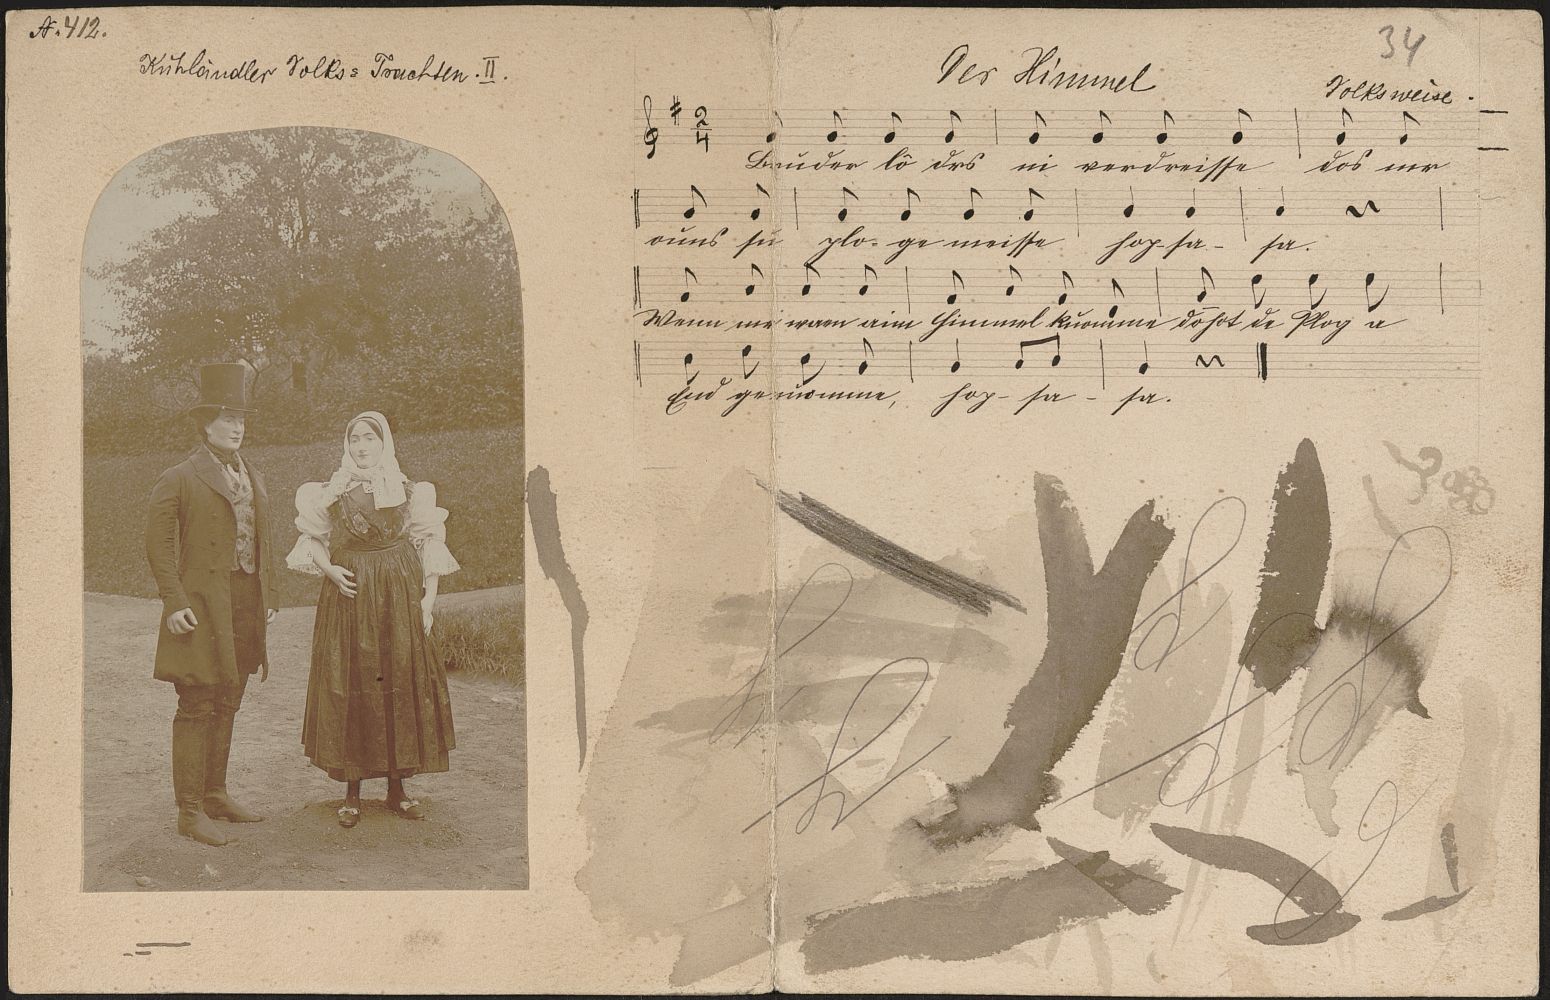 N. 412.
Kuhländler Volks= Trachten. II.
34
Der Himmel
Volksweise.
2/4
Bruder lô drs ni verdreisse dos mr
ouns su plo- ge meisse hop-sa- sa.
Wenn mr waen aim Himmel kuomme dohot de Plog a
End genomme, hop- sa - sa.